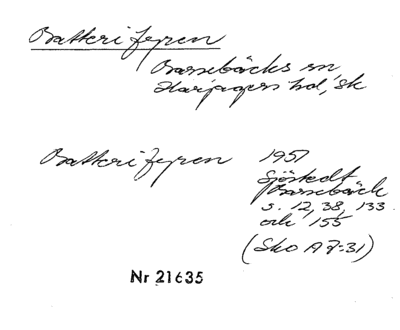 Batterifyren
Barsebäcks sn
Harjagers hd, sk
Batterifyren 1951
Sjöstedt
Barsebäck
s. 12, 38, 133
och 155
(Sko A 7:31)
Nr 21635